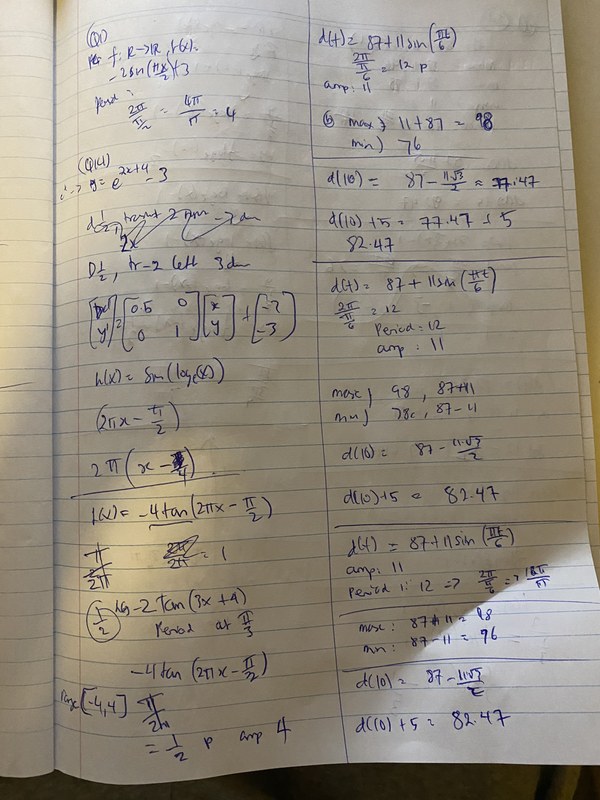 (Q1)
f: R→R, f(x)=
-2sin(πx/2)+3
period:
2π/(π/2) = 4π/π = 4
(Q14)
y = e^(2x+4) - 3
D 1/2, tr -2 left 3 dn
[x' y'] = [0.5 0 0 1] [x y] + [-2 -3]
h(x) = sin(log_e(x))
(2πx - π/2)
2π(x - 1/4)
h(x) = -4tan(2πx - π/2)
π/2π = 1
1/2 -2 Tan(3x+4)
Period at π/3
-4tan(2πx - π/2)
range [-4,4] π/2π
= 1/2 p amp 4
d(t) = 87+11sin(πt/6)
2π/(π/6) = 12 p
amp: 11
(b) max) 11+87 = 98
min) 76
d(10) = 87 - 11√3/2 ≈ 77.47
d(10)+5 = 77.47 + 5
82.47
d(t) = 87 + 11sin(πt/6)
2π/(π/6) = 12
Period: 12
amp: 11
max) 98, 87+11
min) 78, 87-11
d(10) = 87 - 11√3/2
d(10)+5 = 82.47
d(t) = 87+11sin(πt/6)
amp: 11
Period: 12 => 2π/(π/6) => 12π/π
max: 87+11 = 98
min: 87-11 = 96
d(10) = 87 - 11√3/2
d(10)+5 = 82.47